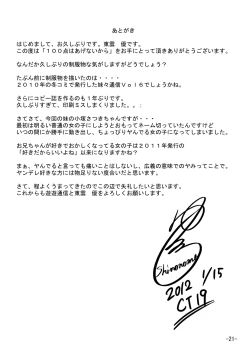 あとがき
はじめまして、お久しぶりです。東雲 優です。
この度は「１００点はあげないから」をお手にとって頂きありがとうございます。
なんだか久しぶりの制服物な気がしますがどうでしょう？
たぶん前に制服物を描いたのは・・・・
２０１０年の冬コミで発行した妹々通信Ｖｏｌ６でしょうかね。
さらにコピー誌を作るのも１年ぶりです。
久しぶりすぎて、印刷ミスしまくりました。。：
さてさて、今回の妹の小塚さつきちゃんですが・・・・
最初は明るい普通の女の子にしようとおもってネーム切っていたんですけど
いつの間にか勝手に動き出し、ちょっぴりヤんでる女の子になってしまいました。
お兄ちゃんが好きでおかしくなってる女の子は２０１１年発行の
「好きだからいいよね」以来になりますかね？
まぁ、ヤんでると言っても痛いことはしないし、広義の意味でのヤみってことで。
ヤンデレ好きな方には物足りない度合いだと思います。
さて、程よくうまってきたのでこの辺で失礼したいと思います。
これからも遊遊通信と東雲 優をよろしくお願いします。
Shinonome
2012 1/15
CT19
-21-